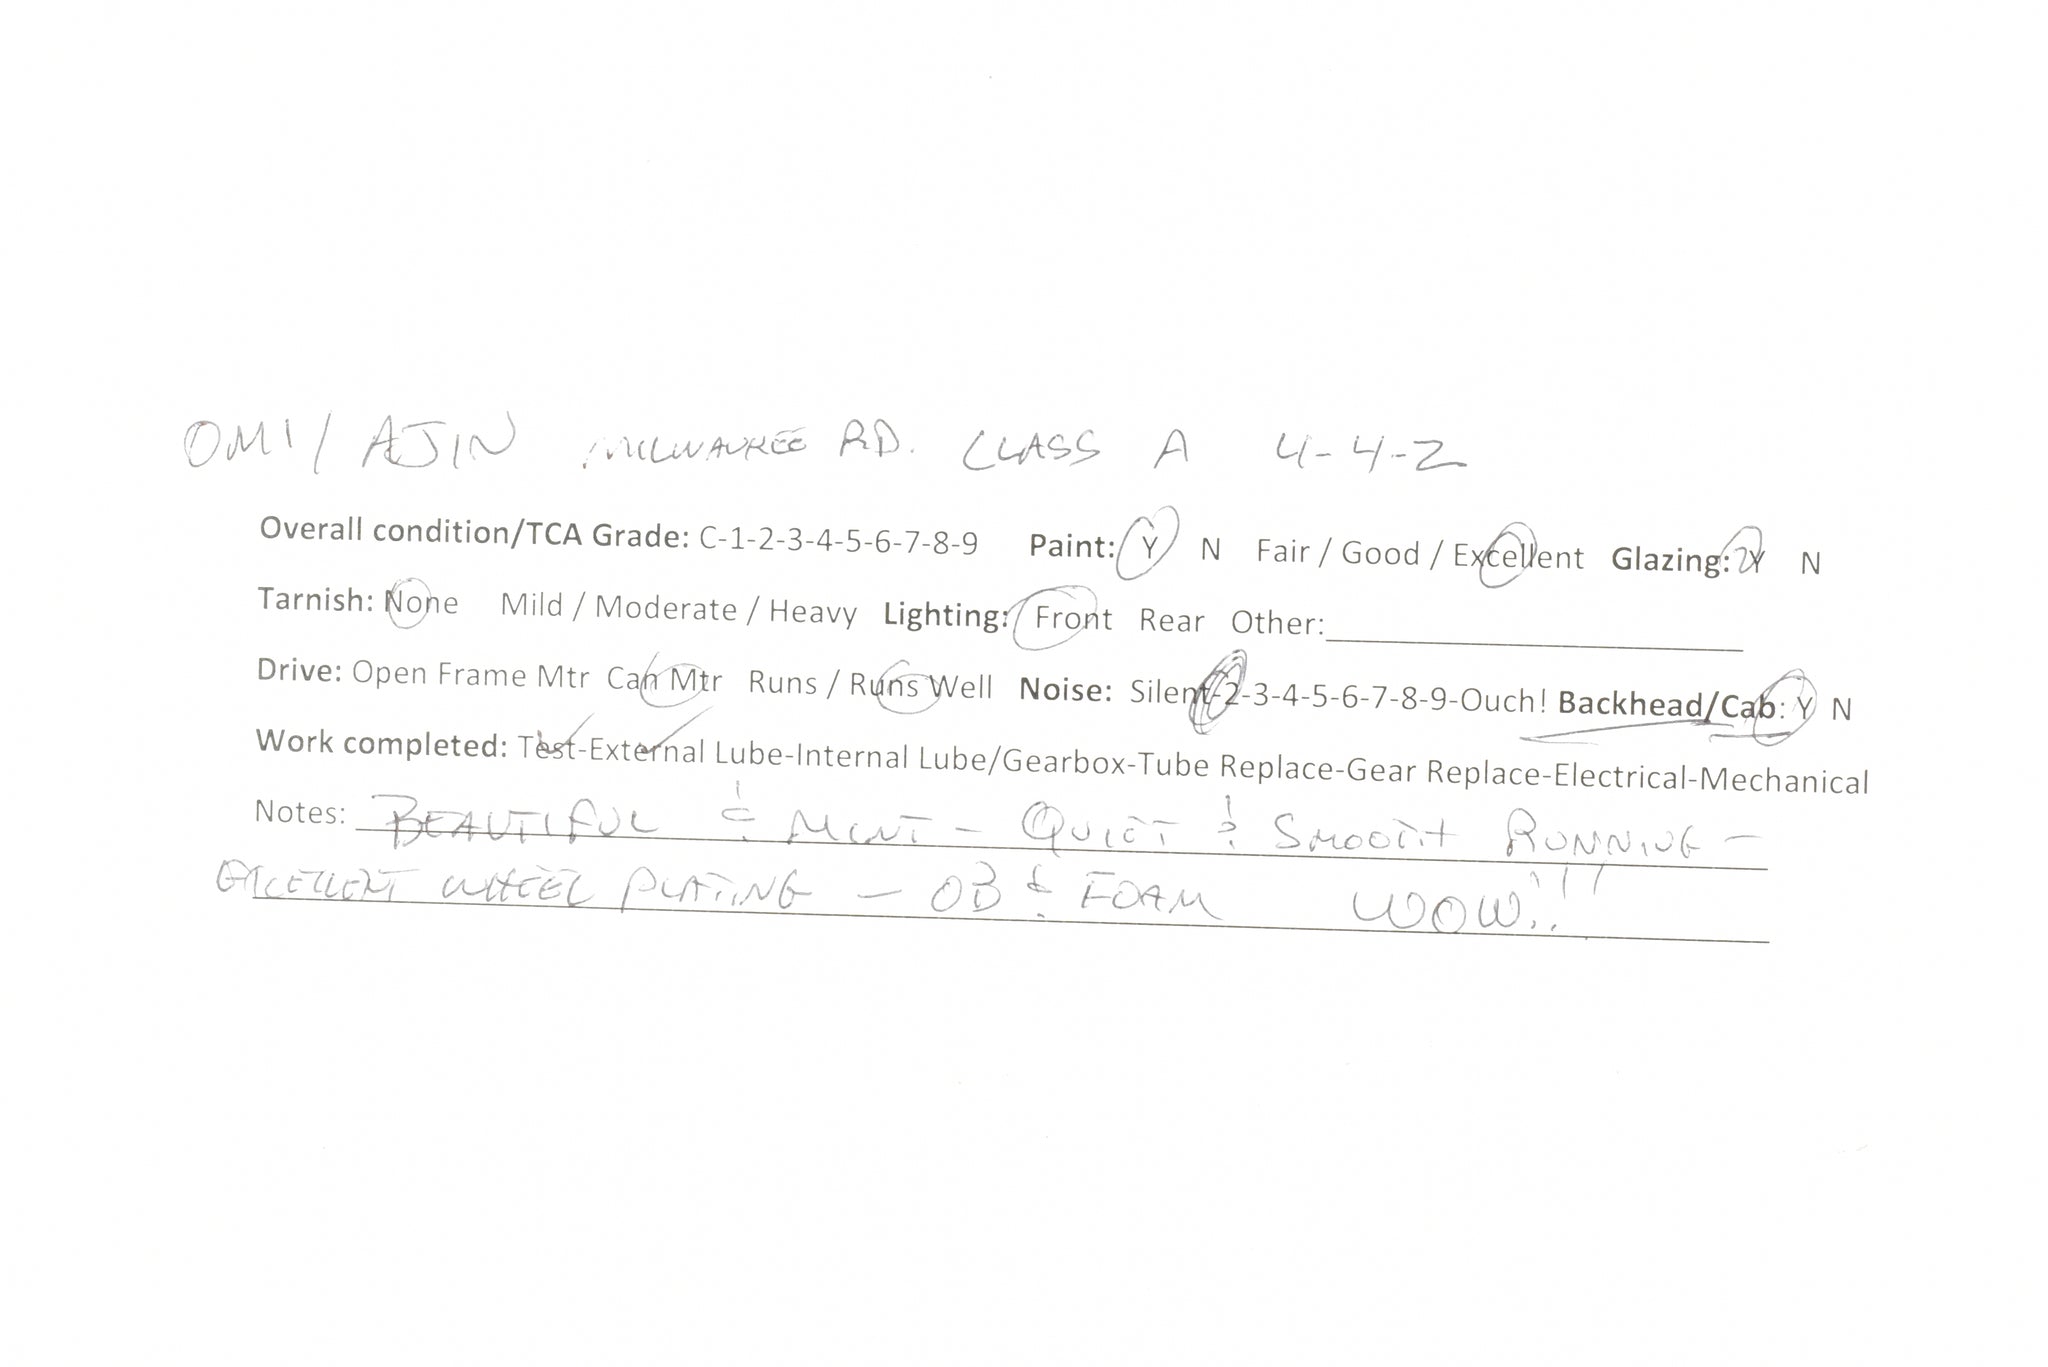 OMI/AJIN MILWAUKEE RD. CLASS A 4-4-2
Overall condition/TCA Grade: C-1-2-3-4-5-6-7-8-9 Paint: Y N Fair / Good / Excellent Glazing: Y N
Tarnish: None Mild / Moderate / Heavy Lighting: Front Rear Other:
Drive: Open Frame Mtr Can Mtr Runs / Runs Well Noise: Silent-2-3-4-5-6-7-8-9-Ouch! Backhead/Cab: Y N
Work completed: Test-External Lube-Internal Lube/Gearbox-Tube Replace-Gear Replace-Electrical-Mechanical
Notes: BEAUTIFUL & MINT - QUIET & SMOOTH RUNNING -
EXCELLENT WHEEL PLATING - OB & FOAM WOW!!!